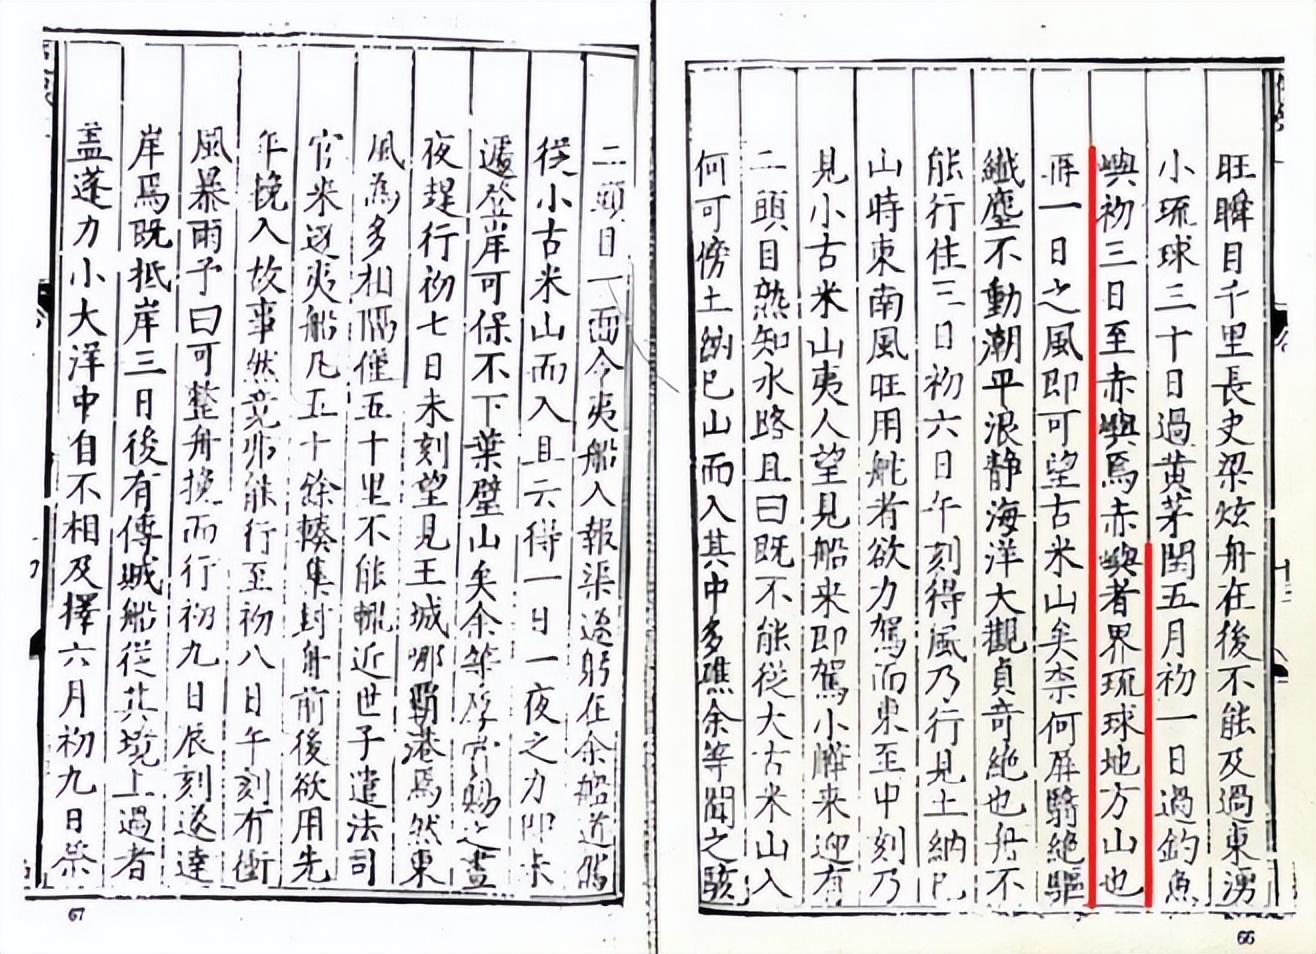 旺瞬目千里長史梁炫舟在後不能及過東湧
小琉球三十日過黃茅閏五月初一日過釣魚
嶼初三日至赤嶼焉赤嶼者界琉球地方山也
再一日之風即可望古米山矣奈何屏翳絕驅
纖塵不動潮平浪静海洋大觀真奇絕也舟不
能行住三日初六日午刻得風乃行見土納己
山時東南風旺用舵者欲力駕而東至申刻乃
見小古米山夷人望見船来即駕小来迎有
二頭目熟知水路且曰既不能從大古米山入
何可傍土納己山而入其中多礁余等聞之駭
66
二頭目一面令夷船入報渠遂躬在余船道駕
從小古米山而入且云得一日一夜之力即未
遽登岸可保不下葉壁山矣余等厚賜之晝
夜趕行初七日未刻望見王城哪霸港焉然東
風為多相隔僅五十里不能輒近世子遣法司
官来逐夷船凡五十餘艘集封舟前後欲用先
年挽入故事然竟弗能行至初八日午刻有衝
風暴雨予曰可整舟挽而行初九日辰刻遂達
岸焉既抵岸三日後有傳贼船從其境上過者
盖蓬力小大洋中自不相及擇六月初九日祭
67